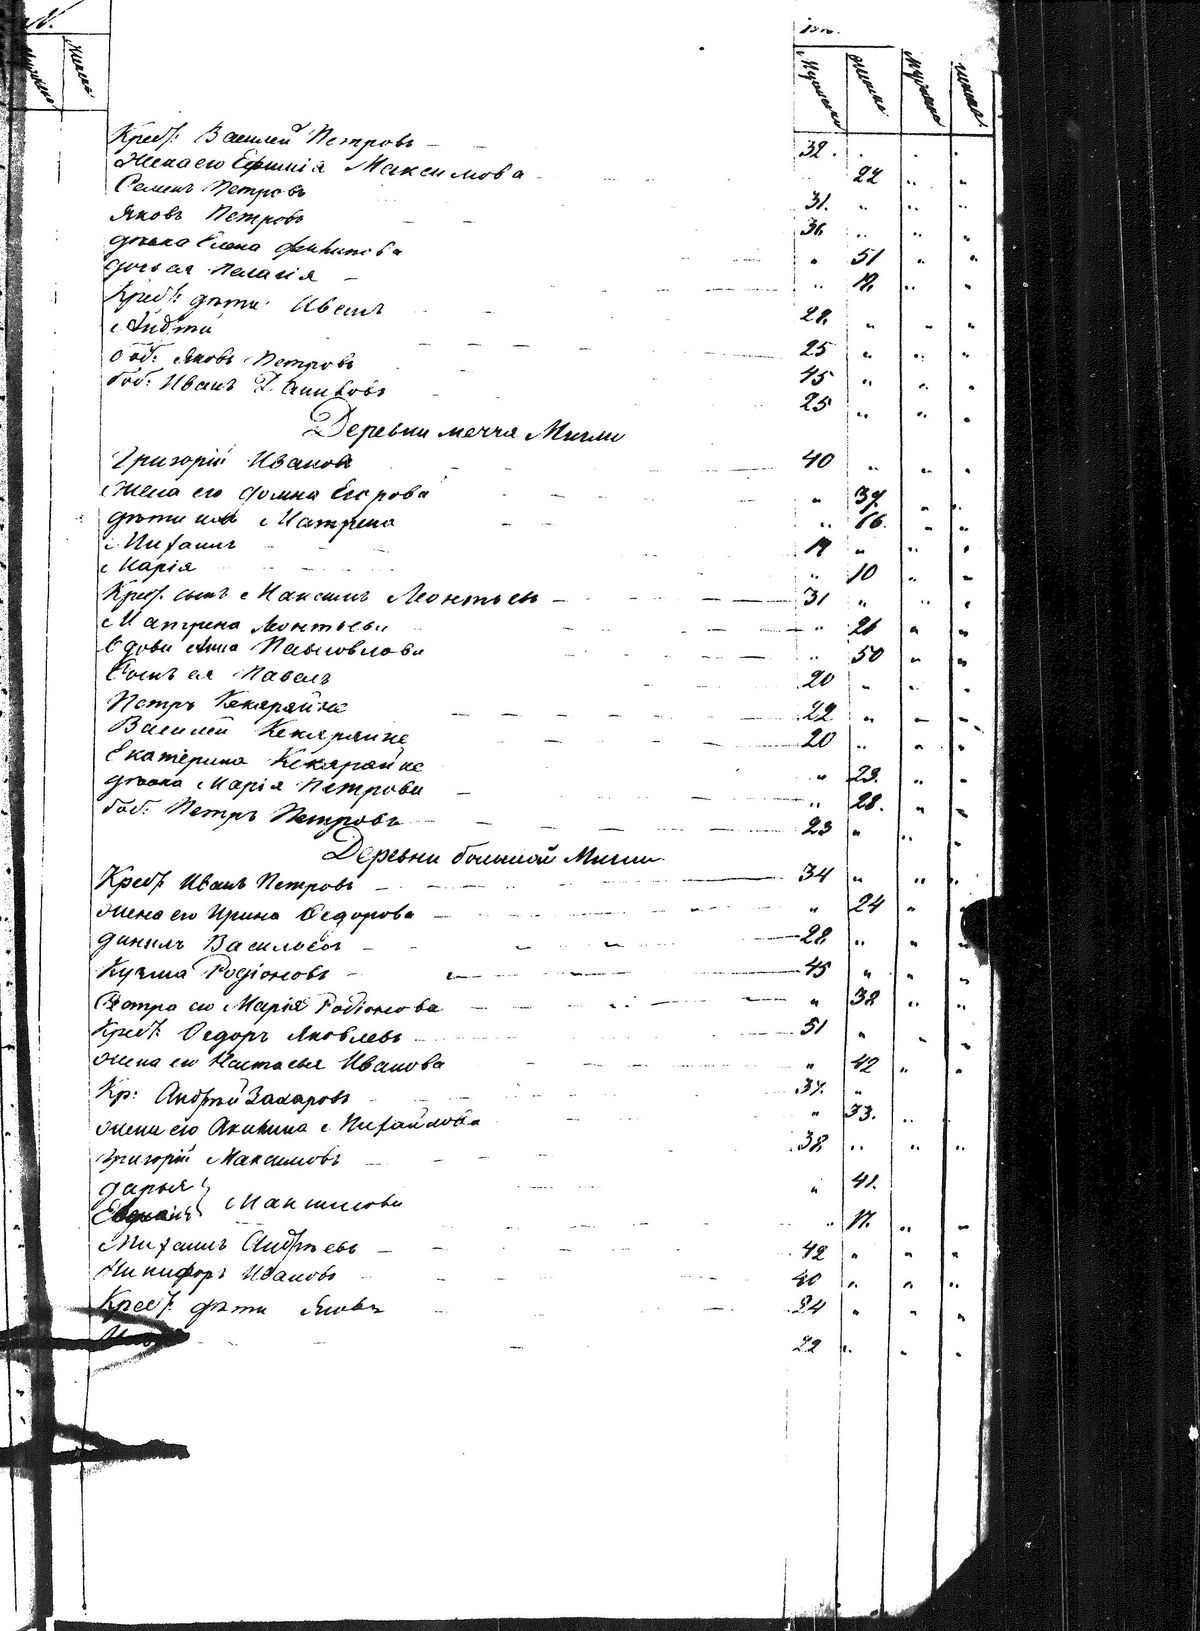 Мужеска
женска
мужска
женска
Крест: Василей Петровъ 32.
Жена его Ефимія Максимова 22
Семенъ Петровъ 31.
Яковъ Петровъ 36
дѣвка Елена 51
дочь ея Пелагія
Крест: дѣти Иванъ 28
25
боб: Яковъ Петровъ 45
боб: Иванъ 25
Деревни Мигли
Григорій Ивановъ 40
Жена его Домна Егорова 37.
дѣти ихъ Матрена 16.
Михаилъ 19
Марія 10
Крест. сынъ Максимъ Леонтьевъ 31
Матрена Леонтьева 21
Вдова Анна 50
Сынъ ея Павелъ 20
Петръ Кекаряйне 22
Василей Кекаряйне 20
Екатерина Кекаряйне 23.
дѣвка Марія Петрова 28.
боб: Петръ Петровъ 23
Деревни большой Мигли
Крест: Иванъ Петровъ 34
жена его Ирина Ѳедорова 24
Данилъ Васильевъ 28
Кузма Родіоновъ 45
Сестра его Марія Родіонова 38
Крест: Ѳедоръ Яковлевъ 51
жена его Настасья Иванова 42
Кр: Андрей Захаровъ 37.
жена его Акилина Михайлова 33.
Григорій Максимовъ 38
Дарья 41.
Максимова
Михаилъ Андреевъ 42
Никифоръ Ивановъ 40
Крест: дѣти Яковъ 24
22